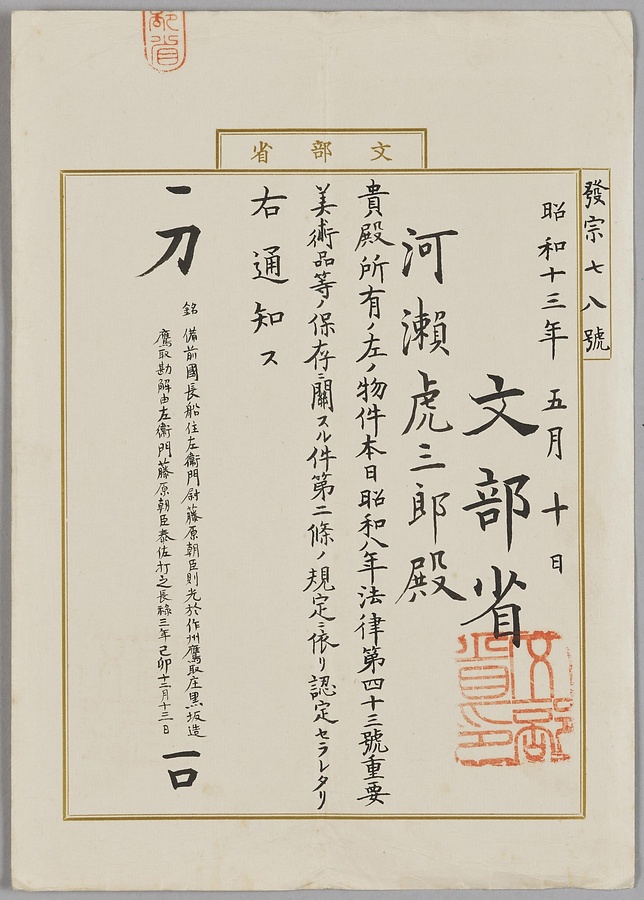 文部省
發宗七八號
昭和十三年五月十日
文部省
河瀬虎三郎殿
貴殿所有ノ左ノ物件本日昭和八年法律第四十三號重要
美術品等ノ保存ニ關スル件第二條ノ規定ニ依リ認定セラレタリ
右通知ス
一刀
銘 備前國長船住左衞門尉藤原朝臣則光於作州鷹取庄黒坂造
鷹取勘解由左衞門藤原朝臣泰佐打之長祿三年己卯十二月十三日
一口